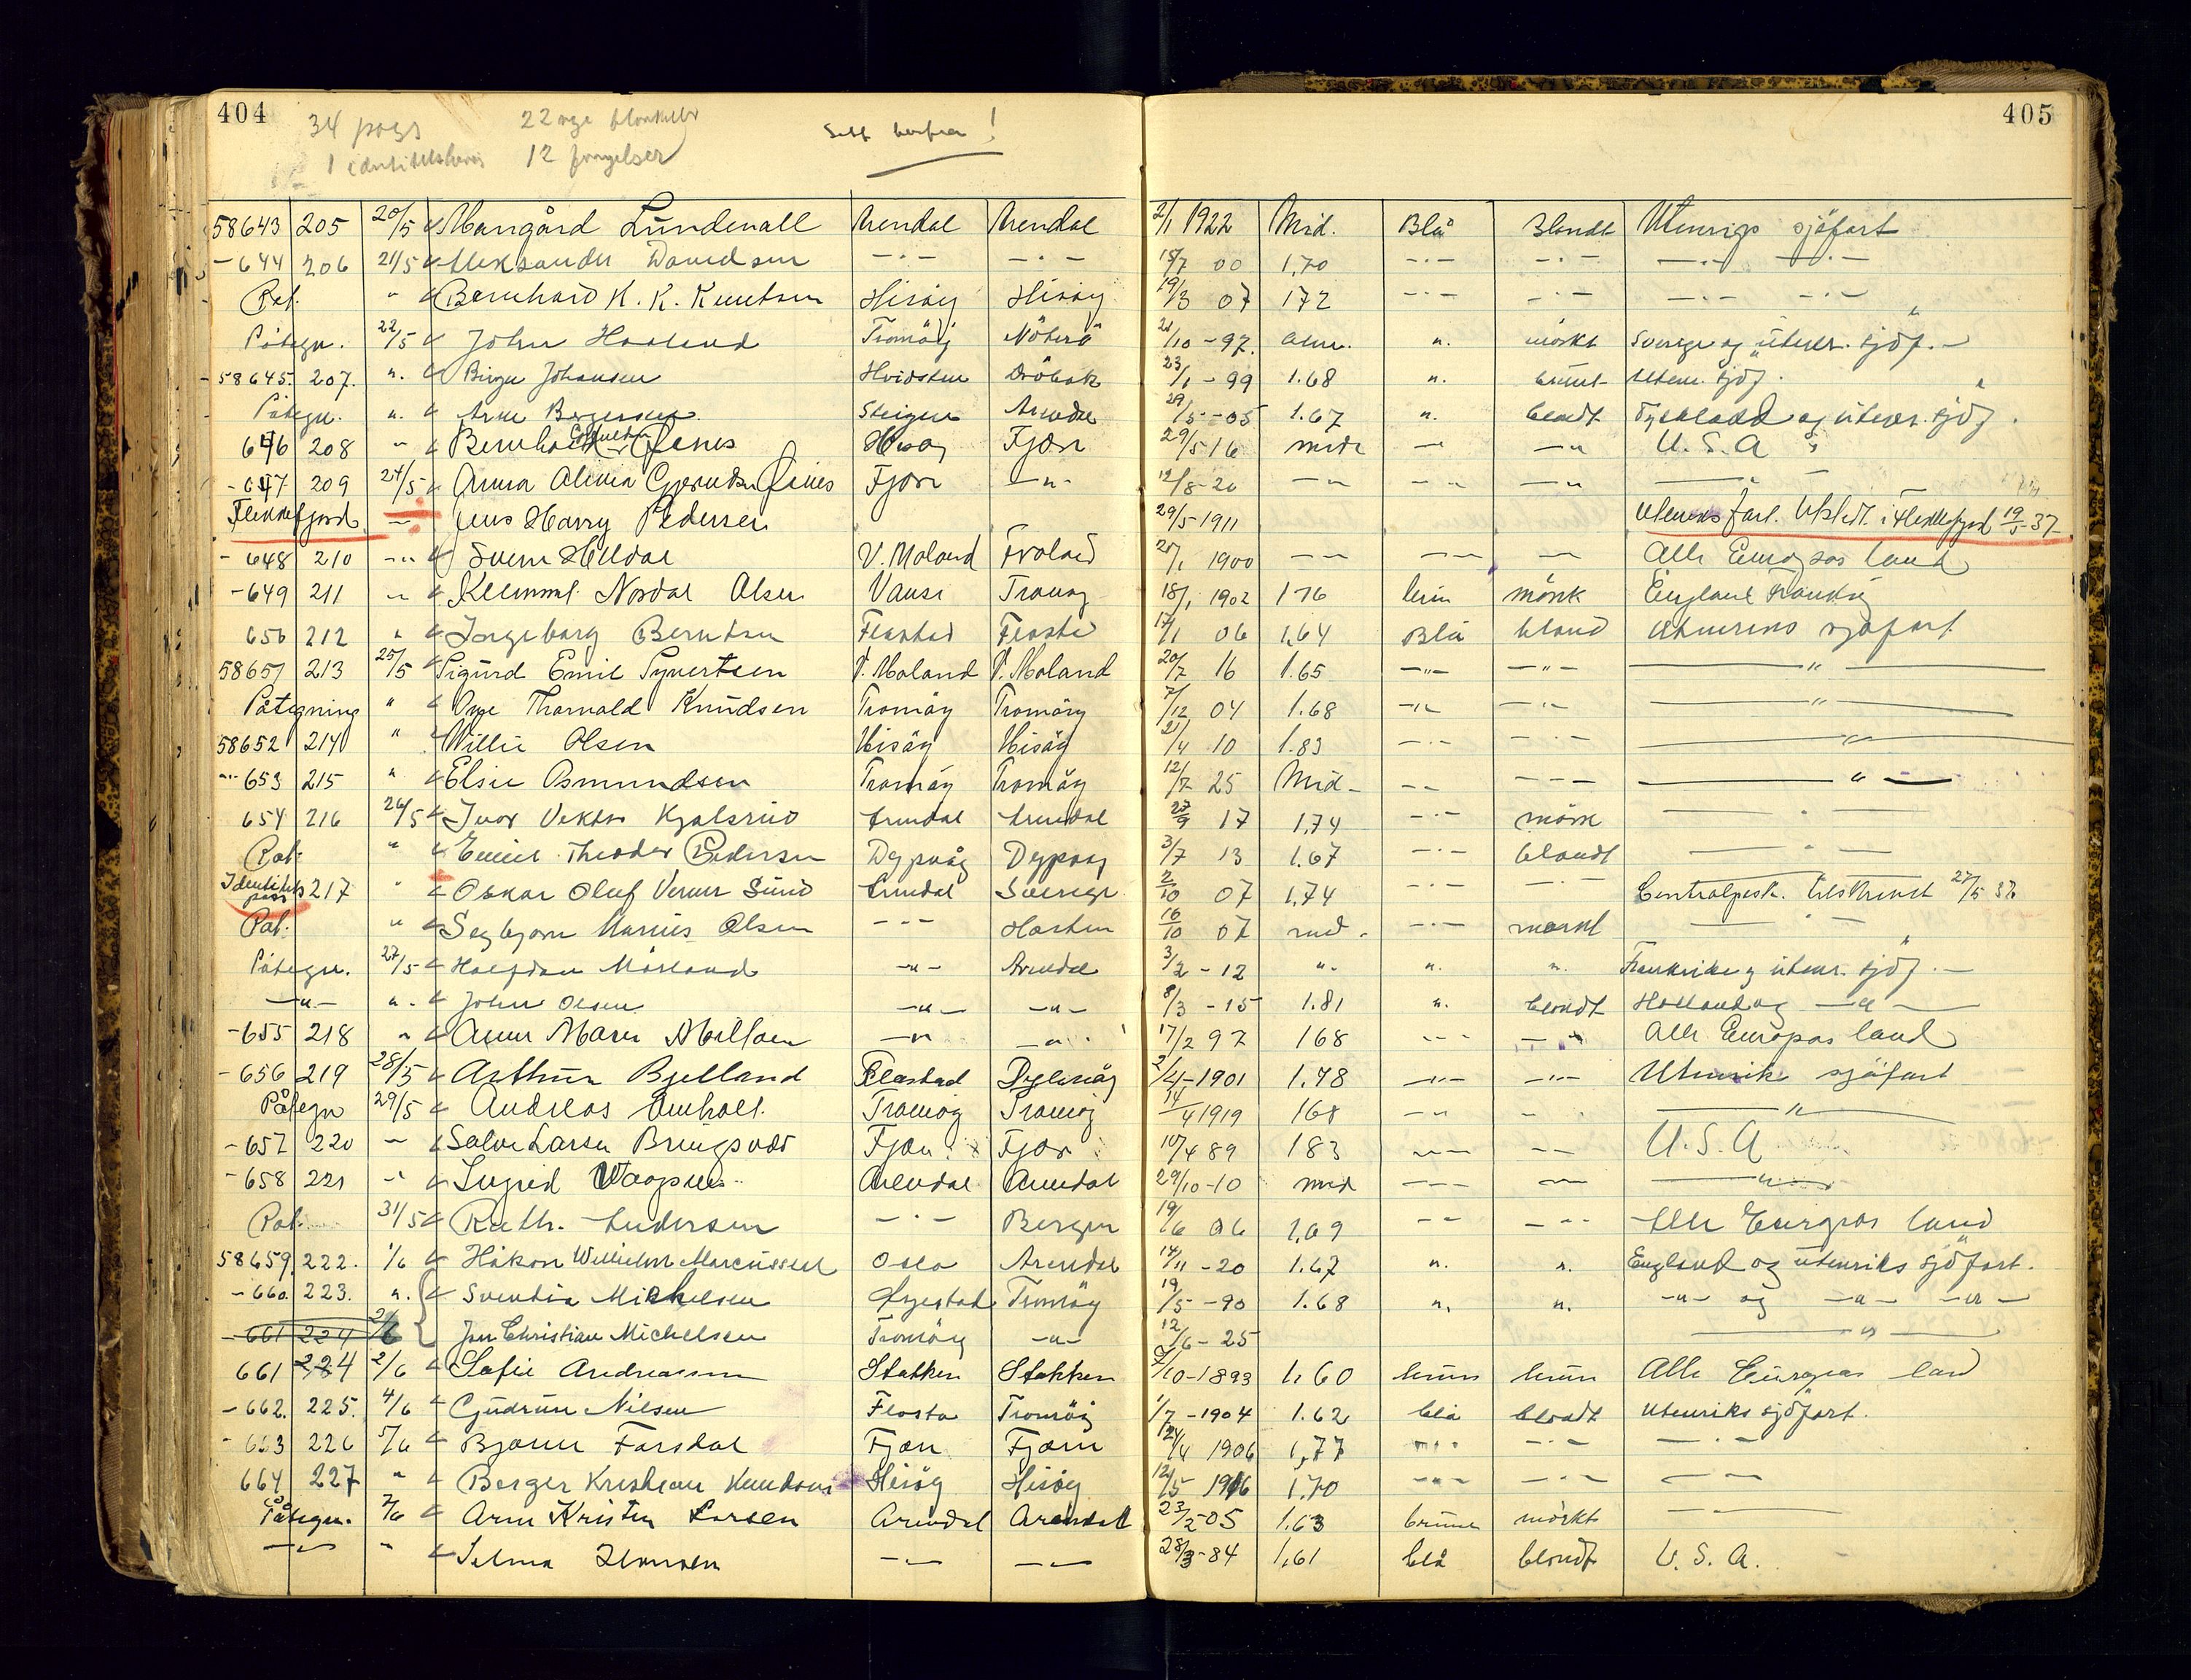 404
34 pass 22 nye
12
!
405
58643 205 20/5 Mangård Lundevall Arendal Arendal 2/1 1922 Mid. Blå Blondt Utenrigs sjöfart
-644 206 21/5 Aleksander Davidsen -·- -·- 18/7 00 1,70 -·- -·- -·- -·-
Pat. " Bernhard K. K. Knutsen Hisöy Hisöy 19/3 07 172 -·- -·- -·- -·-
Påtegn. 22/5 John Haaland Tromöy Nöterö 21/10 -97. alm. ". mörkt Sverige og utenr. sjöf.-
-58645. 207. ". Birger Johansen Hvidsten Dröbak 23/1 -99 1.68 ". brunt Utenr. sjöf.
Påtegn. ". Arne Bergersen Steigen Arendal 29/5 -05 1.67 ". blondt Tyskland og utenr. sjöf.
646 208 " Bernhard Jenes Hisøy Fjære 29/5 16 mid - -" U.S.A
-647 209 24/5 Anna Alivia Gjerudsen Fjære -"- 12/8-20 -- -- -"
Flekkefjord - Jens Harry Pedersen 29/5-1911 Utenriks fart. Utstedt i Flekkefjord 19/5-37
-648 210 -"- Svein Heldal V. Moland Froland 1900 -- -- -- Alle Europas land
-649 211 - Klemmet Nordal Olsen Vanse Tromøy 18/1 1902 176 brun mörk England Frankrig
650 212 " Ingeborg Berntsen Flostad Flosta 17/1 06 1,64 Blå blond Utenriks sjøfart
58651 213 25/5 Sigurd Emil Syvertsen V. Moland V. Moland 20/7 16 1.65 -"- -"- -"-
Påtegning " Åge Thorvald Knudsen Tromöy Tromöy 7/12 04 1.68 -"- -"- -"-
58652 214 " Willie Olsen Hisöy Hisöy 21/4 10 1.83 -·- -·- -"-
-"-653 215 " Elsie Asmundsen Tromöy Tromöy 12/7 25 Mid- -- --- -"-
654 216 26/5 Ivar Viktor Kjalsrud Arendal Arendal 27/9 17 1,74 -·- mörk -"-
Pat. " Emil Theodor Pedersen Dypvåg Dypvåg 3/7 13 1.67 -·- blondt -"-
Identitets pass 217 " Oskar Oluf Verner Sund Arendal Sverige 2/10 07 1,74 -·- -·- Centralpassk. tilskrevet 27/5 37
Pat. " Segbjørn Marius Olsen --- Horten 16/10 07 mid. -·- mørkt -"-
Påtegn. 27/5 Halfdan Mörland -"- Arendal 3/2 -12 ". ". ". Frankrike og utenr. sjöf.-
-"- ". John Olsen -"- -"- 8/3 -15 1.81 ". blondt Holland og -"-
-655 218 " Anne Marie -"- -"- 17/2 97 168 --- -"- Alle Europas land
-656 219 28/5 Arthur Bjelland Flostad Dypvåg 2/4-1901 1.78 -"- -"- Utenriks sjöfart
Påtegn 29/5 Andreas Amholt. Tromøy Tromøy 14/4 1919 168 -"- - -"-
-657 220 - Salve Larsen Bringsvær Fjære Fjære 10/4 89 183 -- -- U.S.A
-658 221 -" Ingrid Arendal Arendal 29/10-10 mid --- -- -"-
Pat. 31/5 Ruth Andersen -·- Bergen 19/6 06 1,69 -- --- Alle Europas land
58659. 222. 1/6 Håkon Wilhelm Marcussen Oslo Arendal 14/11 -20 1.67 ". ". England og utenriks sjöfart.
-660. 223. ". Svendia Mickelsen Öyestad Tromöy 19/5 -90 1.68 ". ". -"- og -"- -"-
-661 224 2/6 Jon Christian Michelsen Tromöy -"- 12/6 -25 -"-
661 224 2/6 Sofie Andreassen Stokken Stokken 7/10-1893 1,60 brun brun Alle Europas land
-662. 225. 4/6 Gudrun Nilsen Flosta Tromöy 1/7 -1904 1.62 blå blondt utenriks sjöfart.
-663 226 5/6 Bjarne Farsdal Fjære Fjære 24/4 1906 1,77 --- -·- -·-
664 227 " Berger Kristian Knudsen Hisöy Hisöy 12/5 1916 1,70 --- -·- --
Påtegn. 7/6 Arne Kristen Larsen Arendal Arendal 23/2-05 1.63 brune mörkt --
-"- " Selma Hansen -"- -"- 28/3-84 1,61 blå blondt U.S.A.